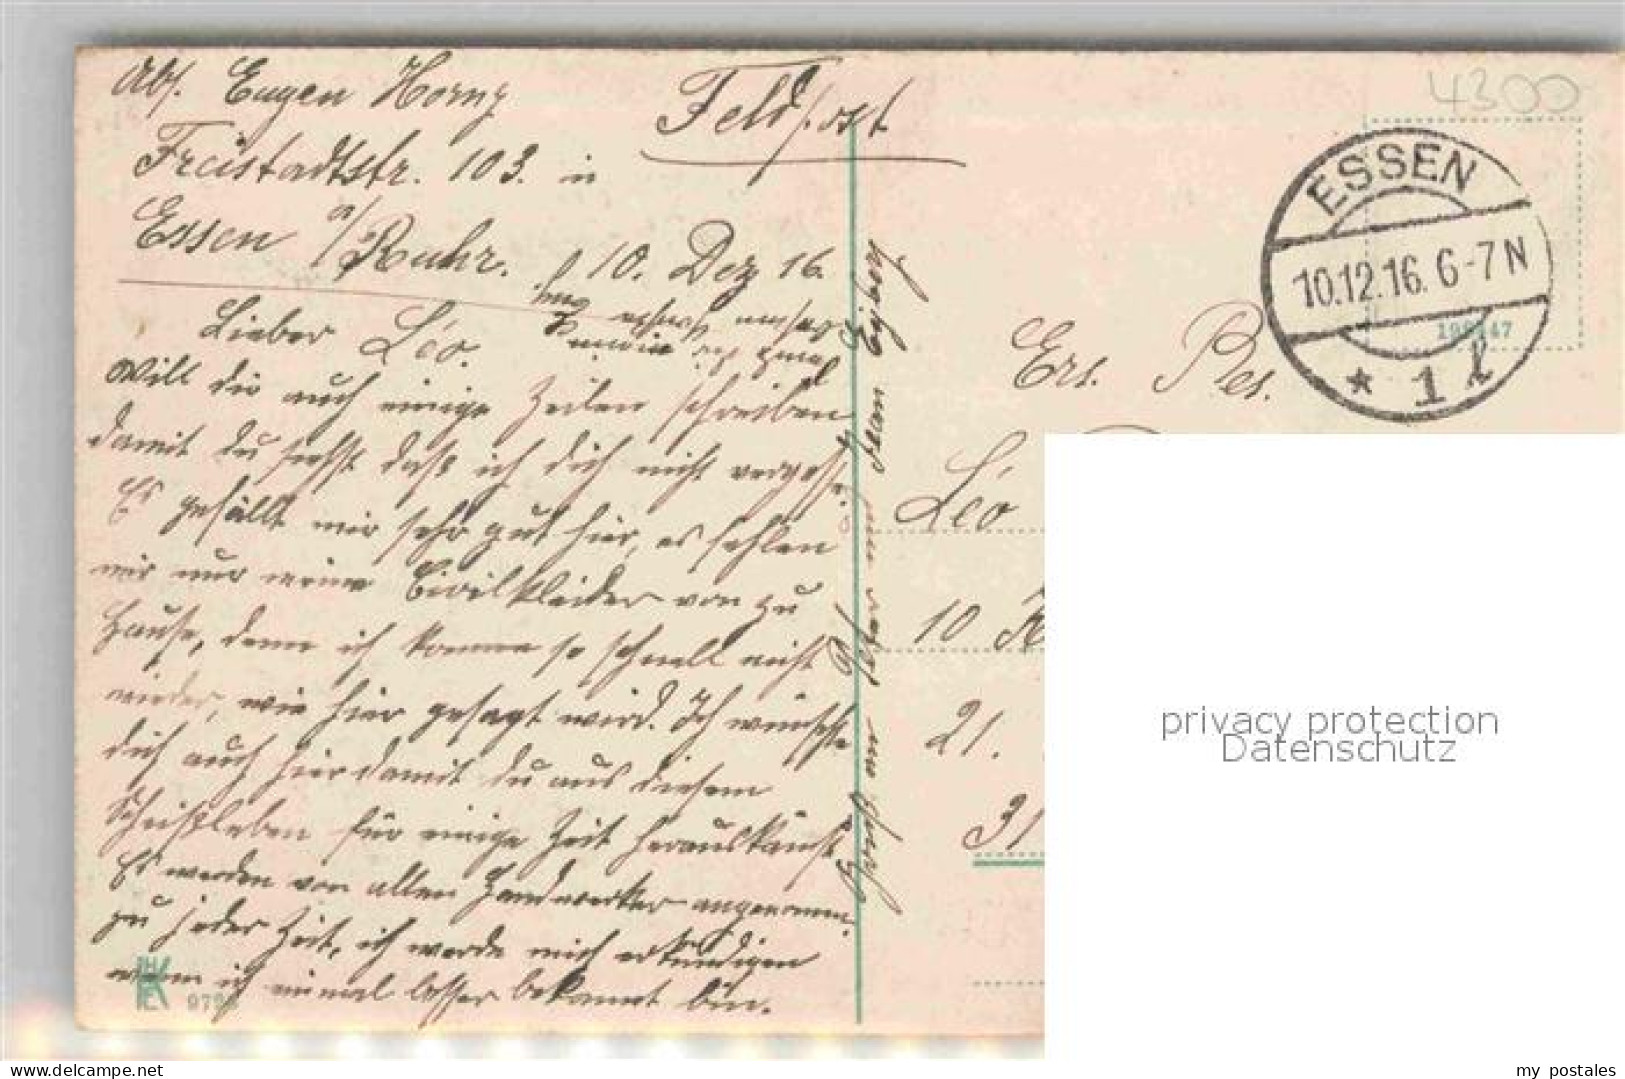 Abs. Eugen Horny
Freistadtstr. 103. in
Essen a/Ruhr.
Feldpost
10. Dez 16.
Lieber Léo.
Will dir auch einige Zeilen schreiben
damit du siehst daß ich dich nicht vergesse.
Es gefällt mir sehr gut hier, es fehlen
mir nur meine Civilkleider von zu
Hause, denn ich komme so schnell nicht
wieder, wie hier gesagt wird. Ich wünschte
dich auch hier damit du aus diesem
Scheißleben für einige Zeit herauskämst
Es werden von allen Handwerker angenommen
zu jeder Zeit, ich werde mich erkundigen
wenn ich einmal besser bekannt bin.
HK
E
4300
ESSEN
10.12.16. 6-7 N
* 1 l
Ers. Res.
Léo
10
21.
31
privacy protection
Datenschutz
www.oldthing.de/ansichtskarten-center
my_postales